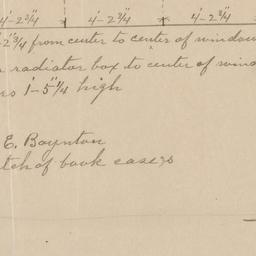 4'-2 3/4 4'-2 3/4 4'-2 3/4
-2 3/4 from center to center of window
radiator box to center of wind
1'-5 1/4 high
E. Boynton
tch of book cases